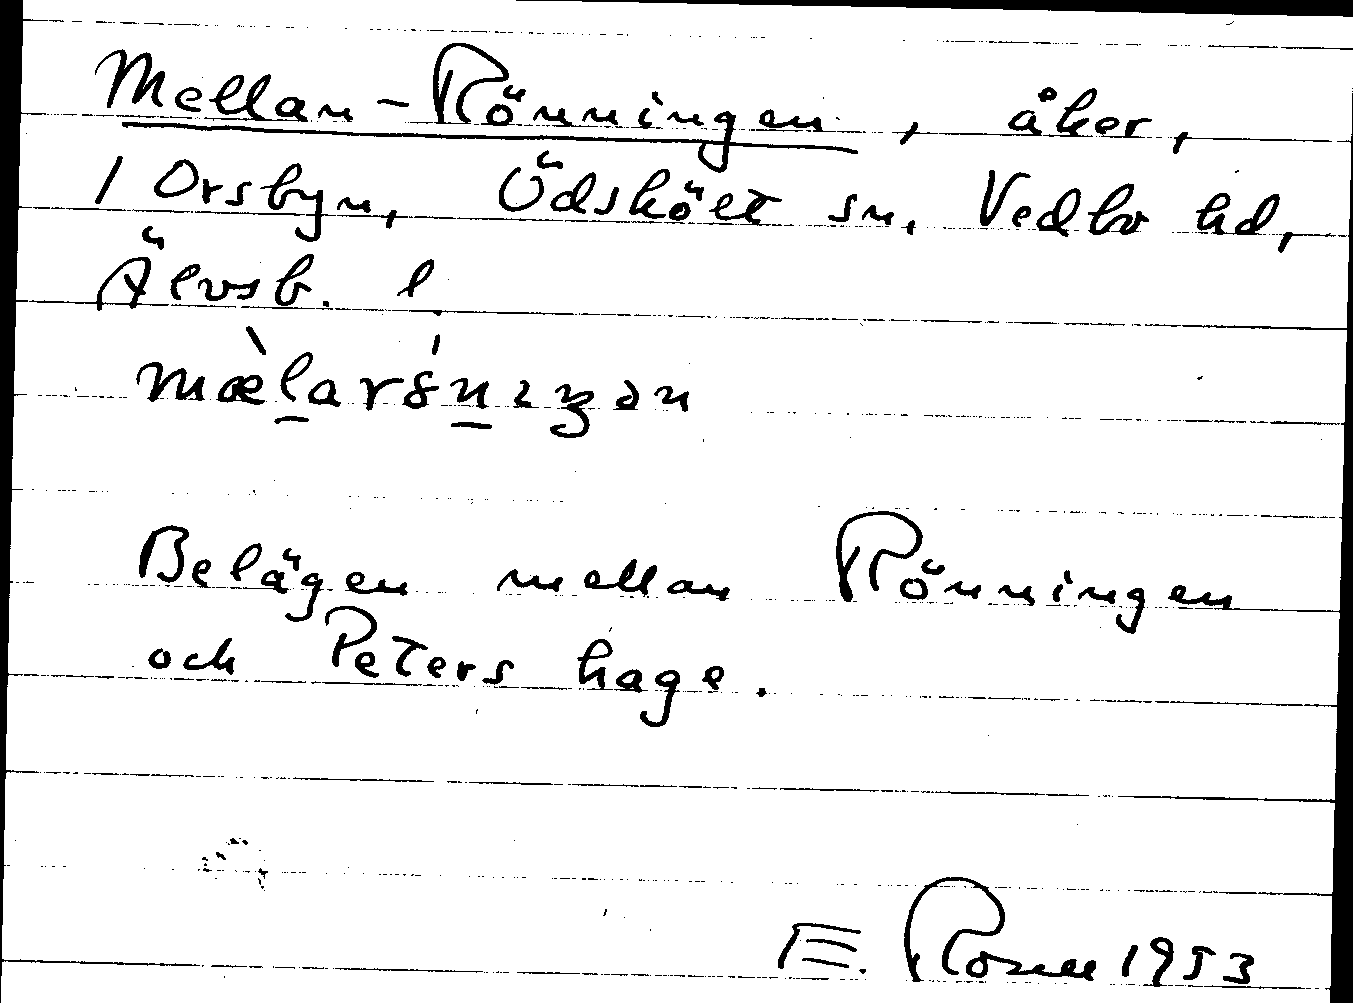 Mellan-Rönningen, åker,
1 Orsbyn, Ödskölt sn, Vedbo hd,
Älvsb. l.
Belägen mellan Rönningen
och Peters hage.
E. Rosell 1953